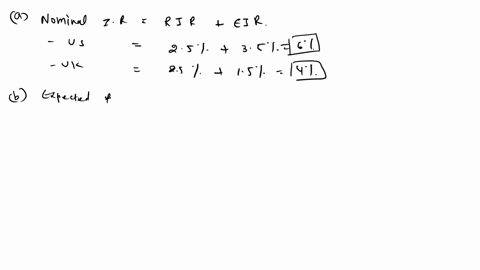 (a) Nominal I.R = RIR + EIR.
- US = 2.5% + 3.5% = 6%
- UK = 2.5% + 1.5% = 4%.
(b) Expected